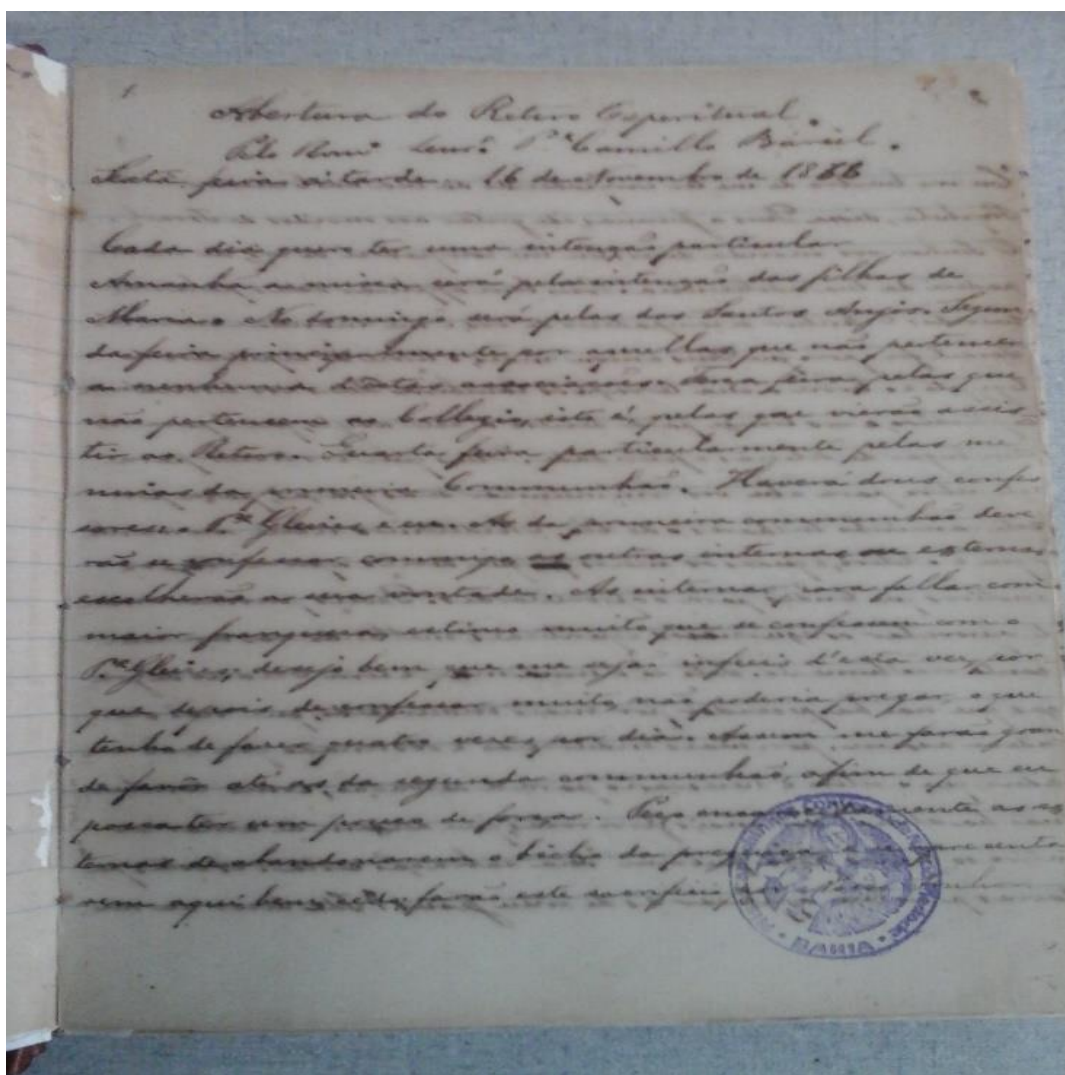 1
Abertura do Retiro Esperitual.
Pelo Rmo Senr. Pe Camillo
Sexta feira á tarde. 16 de Novembro de 1866
Cada dia quero ter uma intenção particular
Amanhã a missa será pela intenção das filhas de
Maria. No domingo será pelas dos Santos Anjos. Segun
da feira principalmente por aquellas que não pertencem
a nenhuma d'estas associações. Terça feira pelas que
não pertencem ao Collegio, isto é, pelas que vierão assis
tir ao Retiro. Quarta feira particularmente pelas me
ninas da primeira Communhão. Haverá dous confes
sores o Pe e eu. As da primeira communhão deve
rão se confessar commigo as outras internas ou externas
escolherão a sua vontade. As internas, para fallar com
maior franqueza, estimo muito que se confessem com o
Pe desejo bem que me sejão infieis d'esta vez, por
que depois de confessar muito não poderia pregar o que
tenho de fazer quatro vezes por dia. Assim me farão gran
de favor até as da segunda communhão, afim de que eu
possa ter um pouco de força. Peço ás ex
ternas de abandonarem o bicho da preguiça
rem aqui farão este sacrificio
BAHIA